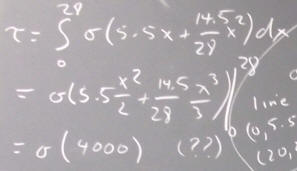 τ = ∫₀²⁸ σ(5.5x + 14.5/28 x²) dx
= σ(5.5 x²/2 + 14.5/28 x³/3)|₀²⁸
= σ(4000) (??)
line
(0, 5.5
(20,